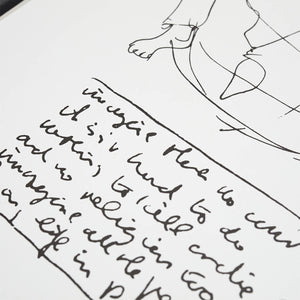 imagine there no coun
it isn't hard to do
nothing to kill or die
and no religion too
imagine all the pe
on life in p